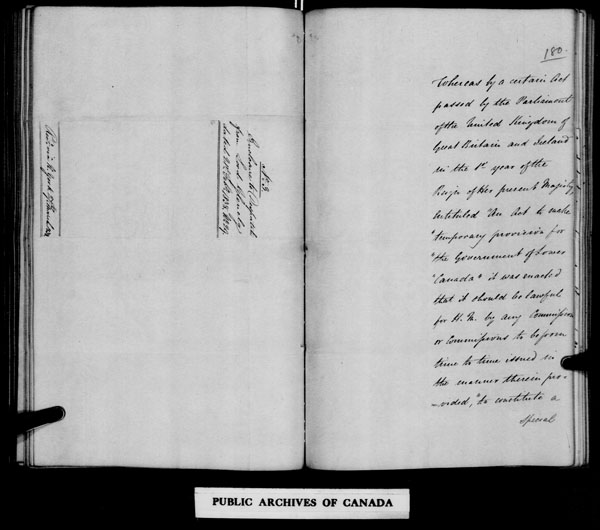 No. 3.
Enclosure to Despatch
from Lord Glenelg
180.
Whereas by a certain Act
passed by the Parliament
of the United Kingdom of
Great Britain and Ireland
in the 1st year of the
Reign of Her present Majesty
Intituled "An Act to make
"temporary provision for
"the Government of Lower
"Canada" it was enacted
that it should be lawful
for H. M. by any Commission
or Commissions to be from
time to time issued in
the manner therein pro-
-vided, "to constitute a
Special
PUBLIC ARCHIVES OF CANADA